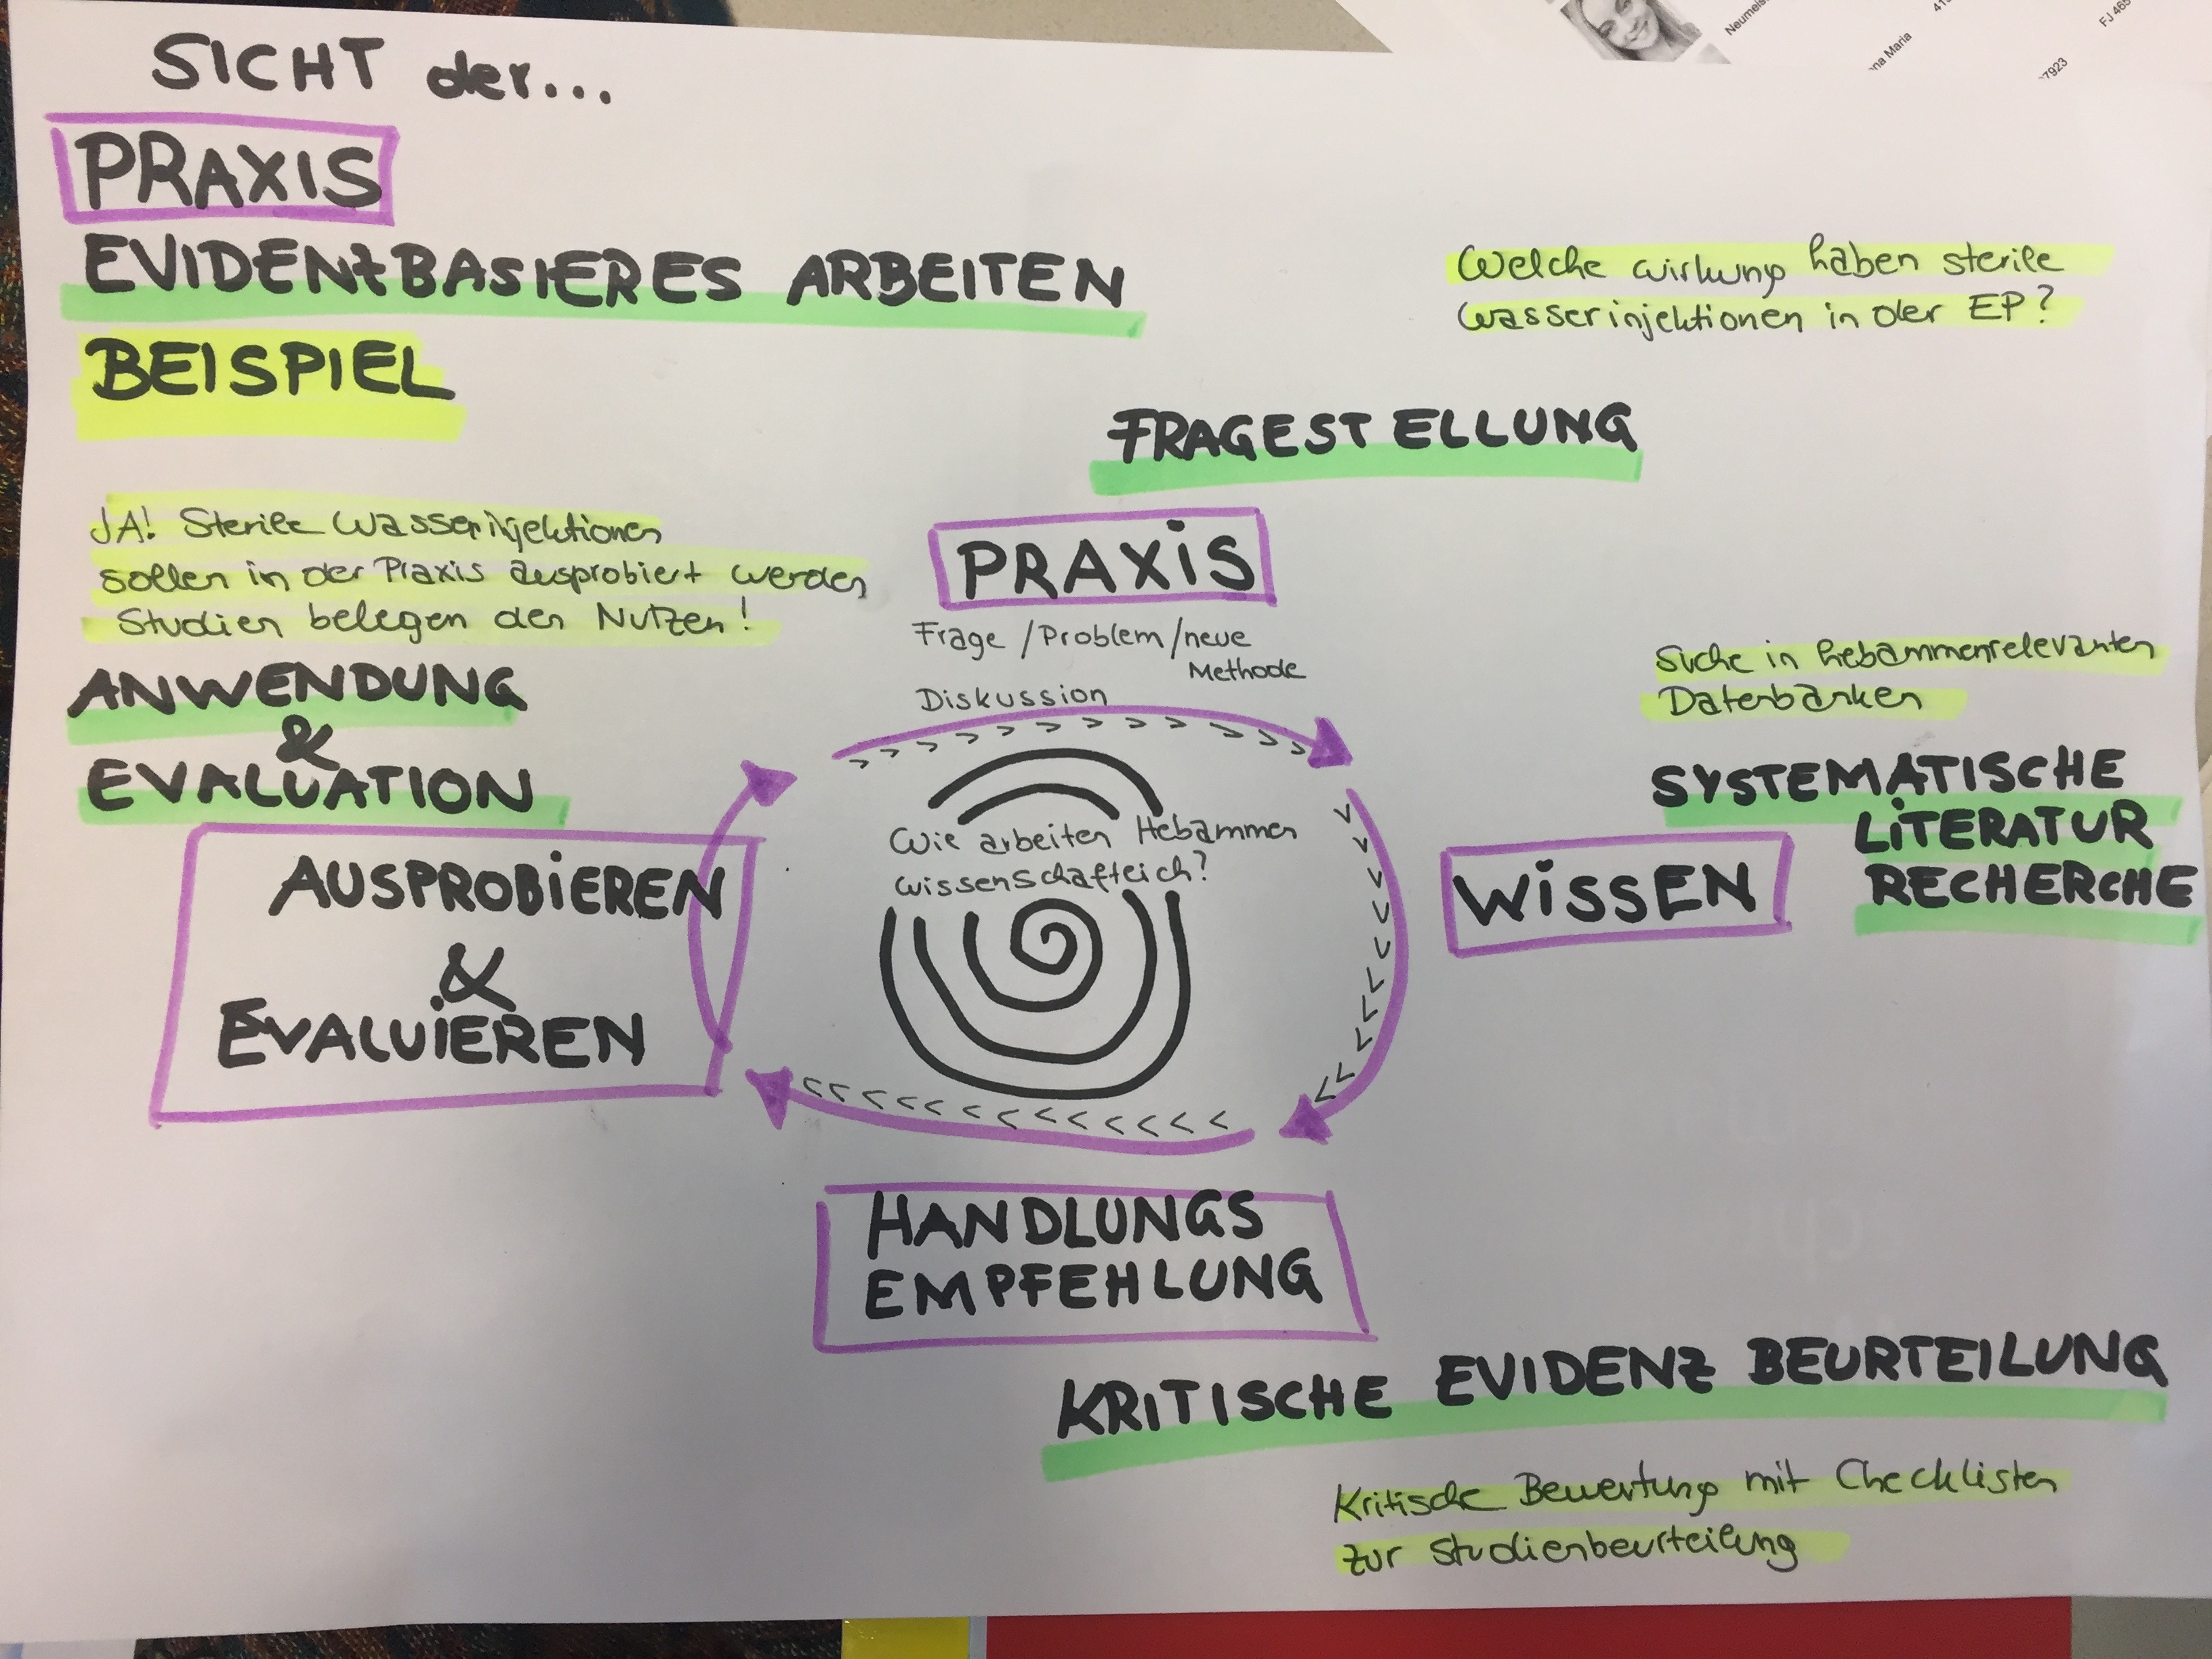 SICHT der...
PRAXIS
EVIDENZBASIERES ARBEITEN
BEISPIEL
Welche wirkung haben sterile
wasserinjektionen in der EP?
FRAGESTELLUNG
PRAXiS
Frage / Problem / neue
Methode
Diskussion
JA! Sterile Wasserinjektionen
sollen in der Praxis ausprobiert werden
Studien belegen den Nutzen!
ANWENDUNG
&
EVALUATION
AUSPROBiEREN
&
EVALUiEREN
Suche in hebammenrelevanten
Datenbanken
SYSTEMATISCHE
LiTERATUR
RECHERCHE
WiSSEN
Wie arbeiten Hebammen
wissenschaftlich?
HANDLUNGS
EMPFEHLUNG
KRITISCHE EVIDENZ BEURTEILUNG
Kritische Bewertung mit Checklisten
zur Studienbeurteilung
na Maria
7923
FJ 465